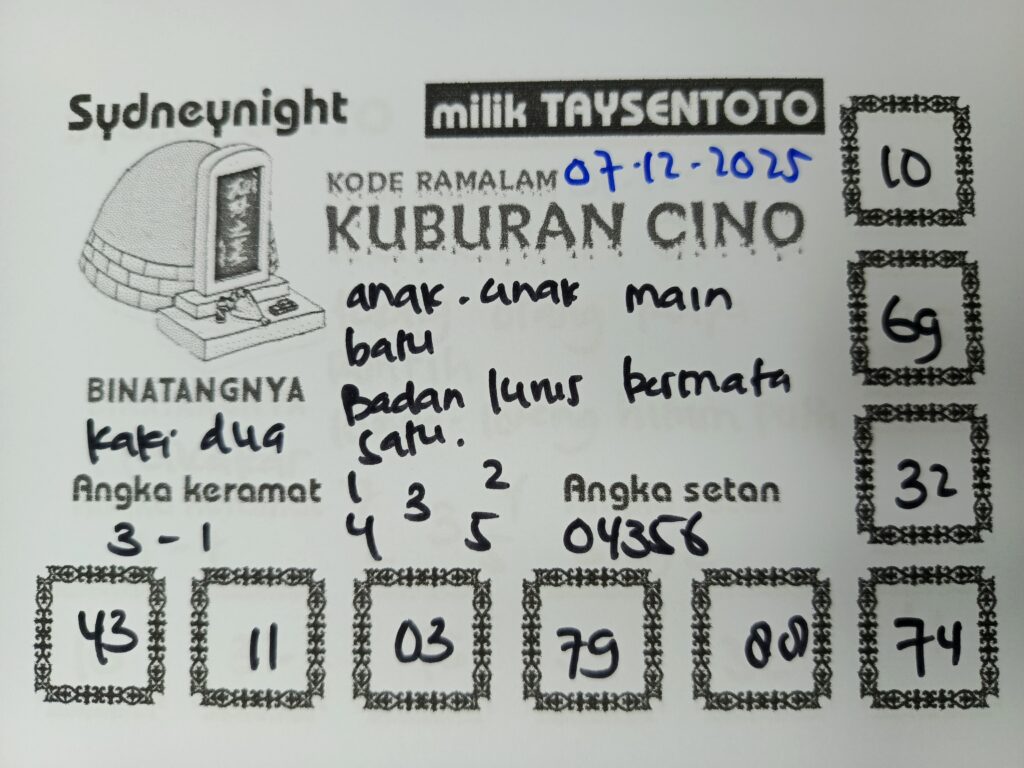 Sydneynight
milik TAYSENTOTO
KODE RAMALAM 07-12-2025
KUBURAN CINO
anak-anak main
batu
Badan lurus bermata
satu.
BINATANGNYA
kaki dua
Angka keramat
3 - 1
1 2
3
4 5
Angka setan
04356
10
69
32
43 11 03 79 88 74